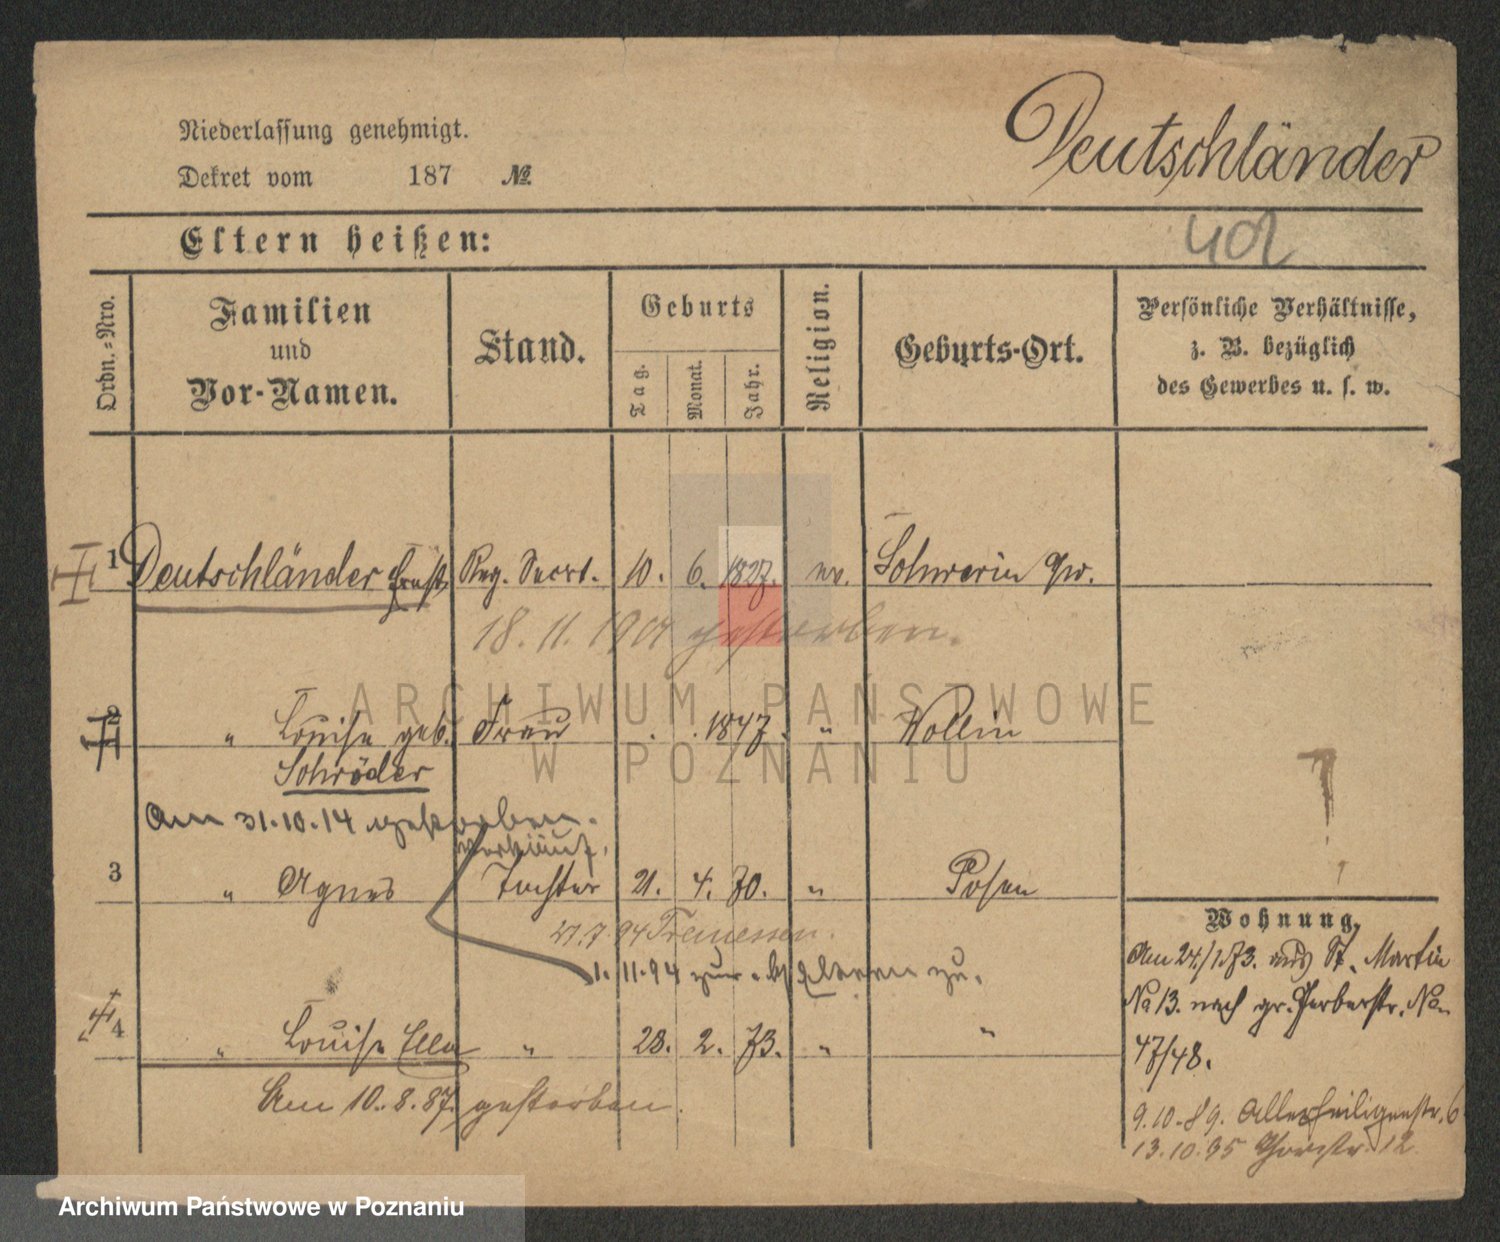 Niederlassung genehmigt.
Dekret vom 187 №
Deutschländer
Eltern heißen:
Ordn.-Nro.
Familien
und
Vor-Namen.
Stand.
Geburts
Tag.
Monat.
Jahr.
Religion.
Geburts-Ort.
Persönliche Verhältnisse,
z. B. bezüglich
des Gewerbes u. s. w.
1 Deutschländer Ernst Reg. Secret. 10. 6. 1827. ev. Schwerin a/w.
18. 11. 1901 gestorben.
ARCHIWUM PAŃSTWOWE
W POZNANIU
2 " Louise geb. Frau 1847. " Wollin
Schröder
Am 31.10.14 gestorben.
3 " Agnes Tochter 21. 4. 70. " Posen
27.7.94 Tremessen.
1.11.94 zu.
4 " Louise Ella " 28. 2. 73. " "
Am 10.8.87. gestorben.
Wohnung.
Am 24./1.73. aus St. Martin
No 13. nach gr. Gerberstr. No
47/48.
9.10.89. Allerheiligenstr. 6
13.10.95 12
Archiwum Państwowe w Poznaniu